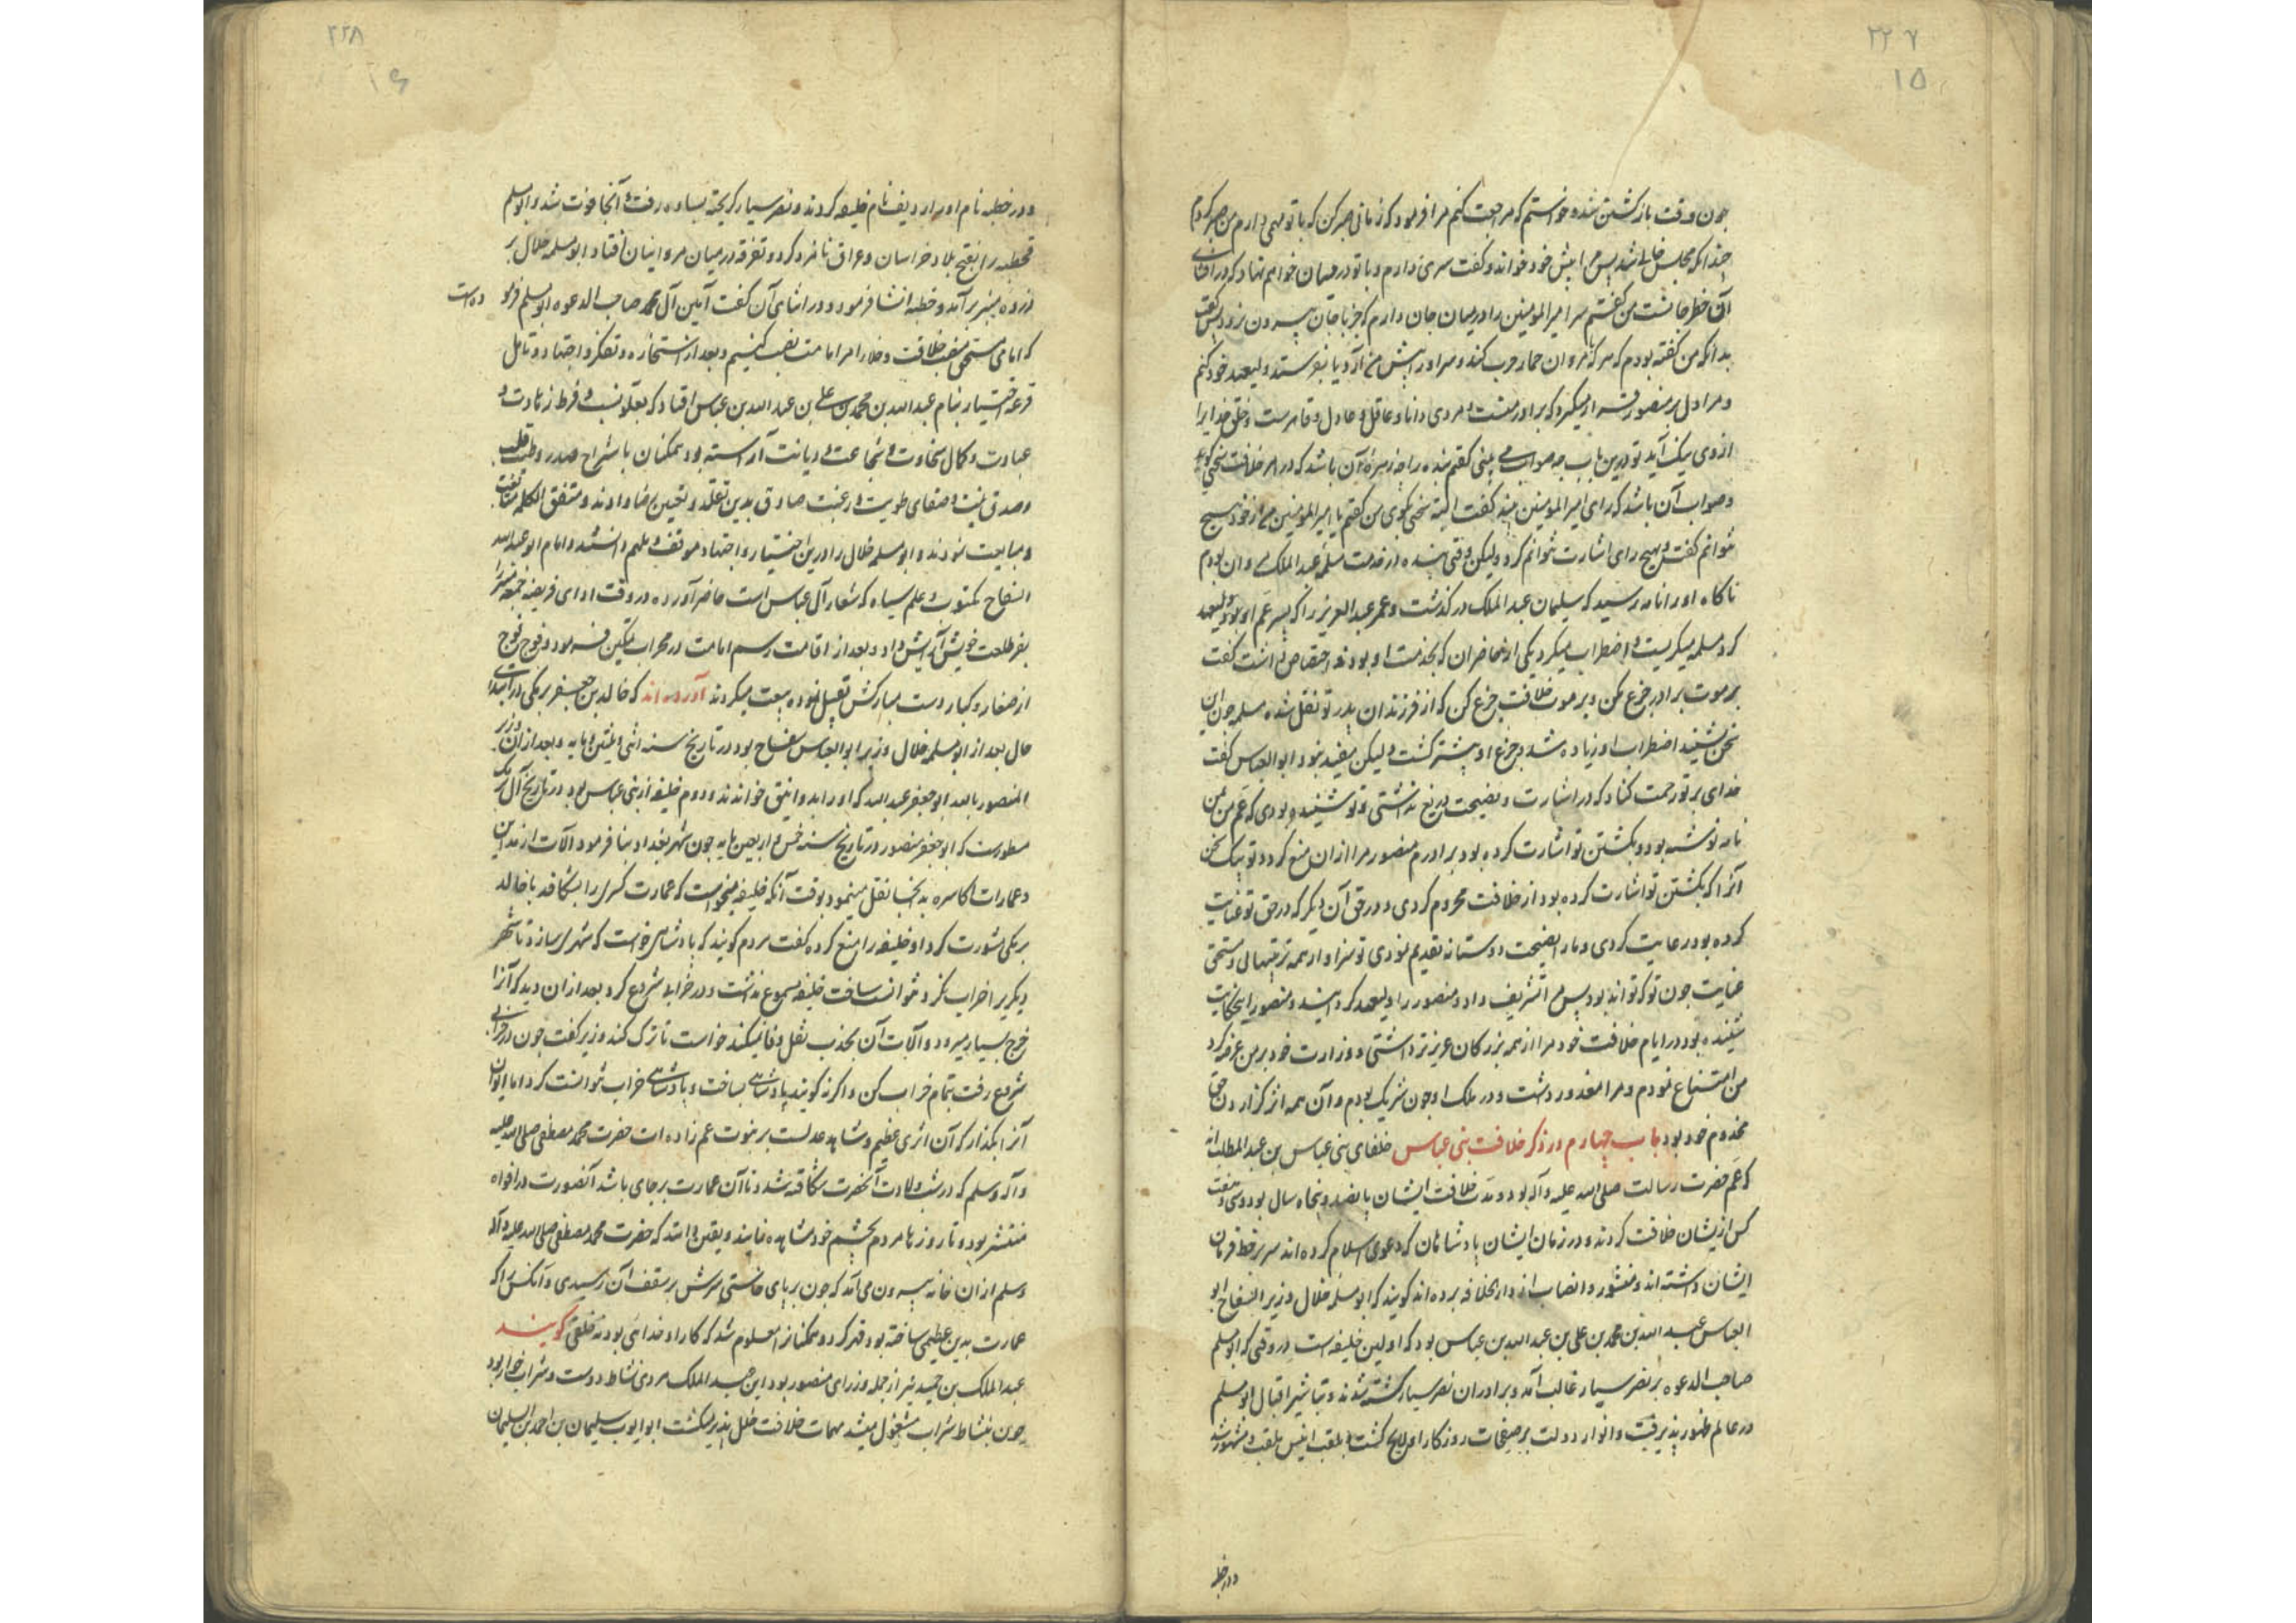 ۲۲۷
۱۵
چون وقت بازگشتن شد و خواستم که مراجعت کنم مرا فرمود که زمانی صبر کن که با تو مهمی دارم من صبر کردم
چندانکه مجلس خالی شد پس مرا پیش خود خواند و گفت سری دارم و با تو در میان خواهم نهاد که در افشای
آن خطر جانست من گفتم سر امیر المومنین را در میان جان دارم که جز با جان بیرون نرود پس گفت
بدانکه من گفته بودم که هر که با مروان حمار حرب کند و سر او را پیش من آرد یا بفرستد ولیعهد خود کنم
و مرا دل بر منصور قرار میگیرد که برادر منست و مردی دانا و عاقل و عادل و قاهرست و خلق خدایرا
از وی نیک آید تو درین باب چه صواب می بینی گفتم بنده را چه زهرهٔ آن باشد که در امر خلافت سخنی گوید
و صواب آن باشد که رای امیر المومنین بیند گفت البته سخنی بگوی من گفتم یا امیر المومنین من از خود هیچ
نتوانم گفت و بهیچ رای اشارت نتوانم کرد ولیکن وقتی بنده در خدمت مسلمه عبد الملک مروان بودم
ناگاه او را نامه رسید که سلیمان عبد الملک درگذشت و عمر عبد العزیز را که پسر عم او بود ولیعهد
کرد مسلمه میگریست و اضطراب میکرد یکی از حاضران که بخدمت او بود و اختصاص داشت گفت
بر موت برادر جزع مکن و بر موت خلافت جزع کن که از فرزندان پدر تو نقل شده مسلمه چون این
سخن شنید اضطراب او زیاده شد و جزع او بیشتر گشت ولیکن مفید نبود ابو العباس گفت
خدای بر تو رحمت کناد که در اشارت و نصیحت دریغ نداشتی و تو شنیده بودی که عم من بمن
نامه نوشته بود و بکشتن تو اشارت کرده بود برادرم منصور مرا از آن منع کرد و تو بیک سخن
آنرا که بکشتن تو اشارت کرده بود از خلافت محروم کردی و در حق آن دیگر که در حق تو عنایت
کرده بود رعایت کردی و ما را نصیحت دوستانه تقدیم نمودی تو سزاوار همه تربیتهایی و مستحق
عنایت چون تو که تواند بود پس مرا تشریف داد و منصور را ولیعهد گردانید و منصور این حکایت
شنیده بود در ایام خلافت خود مرا از همه بزرگان عزیزتر داشتی و وزارت خود بر من عرضه کرد
من امتناع نمودم و مرا معذور داشت و در ملک او چون شریک بودم و آن همه اثر گزاردن حق
مخدوم خود بود باب چهارم در ذکر خلافت بنی عباس خلفای بنی عباس بن عبد المطلب اند
که عم حضرت رسالت صلی الله علیه وآله بود و مدت خلافت ایشان پانصد و پنجاه سال بود و سی و هفت
کس از ایشان خلافت کردند و در زمان ایشان پادشاهان که دعوی اسلام کرده اند سر بر خط فرمان
ایشان داشته اند و منشور و انصاب از دار الخلافه برده اند گویند که ابو سلمه خلال وزیر السفاح ابو
العباس عبد الله بن محمد بن علی بن عبد الله بن عباس بود که اولین خلیفه است در وقتی که ابو مسلم
صاحب الدعوه بر نصر سیار غالب آمد و برادران نصر سیار کشته شدند و تباشیر اقبال ابو مسلم
در عالم ظهور پذیرفت و انوار دولت بر صفحات روزگار او لایح گشت و بلقب مشهور شد
و در خطبه
۲۲۸
۱۶
و در خطبه نام او را ردیف نام خلیفه کردند و نصر سیار گریخته بساوه رفت و آنجا فوت شد و ابو مسلم
قحطبه را بفتح بلاد خراسان و عراق نامزد کرد و تفرقه در میان مروانیان افتاد ابو سلمه خلال بر
ذروه منبر برآمد و خطبه انشا فرمود و در اثنای آن گفت آمین آل محمد صاحب الدعوه ابو مسلم فرمو
ده است
که امامی مستحق منصب خلافت و خلار امر امامت نصب کنیم و بعد از استخاره و تفکر و اجتهاد و تامل
قرعه اختیار بنام عبد الله بن محمد بن علی بن عبد الله بن عباس افتاد که بعلو نسب و فرط زهادت و
عبادت و کمال سخاوت و شجاعت و دیانت آراسته بود همکنان بانشراح صدر و طیب قلب
و صدق نیت و صفای طویت و رغبت صادق بدین تقلد و تعیین رضا دادند و متفق الکلمه متابعت
و مبایعت نمودند و ابو سلمه خلال را درین اختیار و اجتهاد موفق و ملهم دانستند و امام ابو عبد الله
السفاح مکتوب و علم سیاه که شعار آل عباس است حاضر آورده در وقت ادای فریضه جمعه منبر را
بفر طلعت خویش آرایش داد و بعد از اقامت رسم امامت در محراب تمکین فرمود و فوج فوج
از صغار و کبار دست مبارکش تقبیل نموده بیعت میکردند آورده اند که خالد بن جعفر برمکی در ابتدای
حال بعد از ابو سلمه خلال وزیر ابو العباس سفاح بود در تاریخ سنه اثنی و ثلثین و مایه و بعد از آن وزیر
المنصور بالله ابو جعفر عبد الله که او را ابو دوانیق خوانند و دوم خلیفه از بنی عباس بود و در تاریخ آل برمک
مسطورست که ابو جعفر منصور در تاریخ سنه خمس و اربعین مایه چون شهر بغداد بنا فرمود آلات از مداین
و عمارات اکاسره بدانجا نقل مینمود بوقت آنکه خلیفه میخواست که عمارت کسری را بشکافد با خالد
برمکی مشورت کرد او خلیفه را منع کرده گفت مردم گویند که پادشاهی خواست که شهری سازد تا شهر
دیگریرا خراب نکرد نتوانست ساخت خلیفه مسموع نداشت و در خرابی شروع کرد بعد از آن دید که آنرا
خرج بسیار میرود و آلات آن بجذب ثقل وفا نمیکند خواست تا ترک کند وزیر گفت چون در خرابی
شروع رفت بتمام خراب کن و اگر نه گویند پادشاهی بساخت و پادشاهی خراب نتوانست کرد اما ایوان
آنرا بگذار که آن اثری عظیم و شاهد عدلست بر نبوت عم زاده ات حضرت محمد مصطفی صلی الله علیه
وآله وسلم که در شب ولادت آنحضرت شکافته شد و تا آن عمارت بر جای باشد آنصورت در افواه
منتشر بود و تا روزها مردم بچشم خود مشاهده نمایند و یقین دانند که حضرت محمد مصطفی صلی الله علیه وآله
وسلم از آن خانه بیرون می آمد که چون بر پای خاستی سرش بر سقف آن رسیدی و آنکس را که
عمارت بدین عظیمی ساخته بود قهر کرد و همکنانرا معلوم شد که کار او خدائی بود نه خلقی گویند
عبد الملک بن حمید نیز از جمله وزرای منصور بود این عبد الملک مردی نشاط دوست و شراب خوار بود
چون بنشاط شراب مشغول میشد مهمات خلافت خلل پذیر میگشت ابو ایوب سلیمان بن احمد بن السلیمان